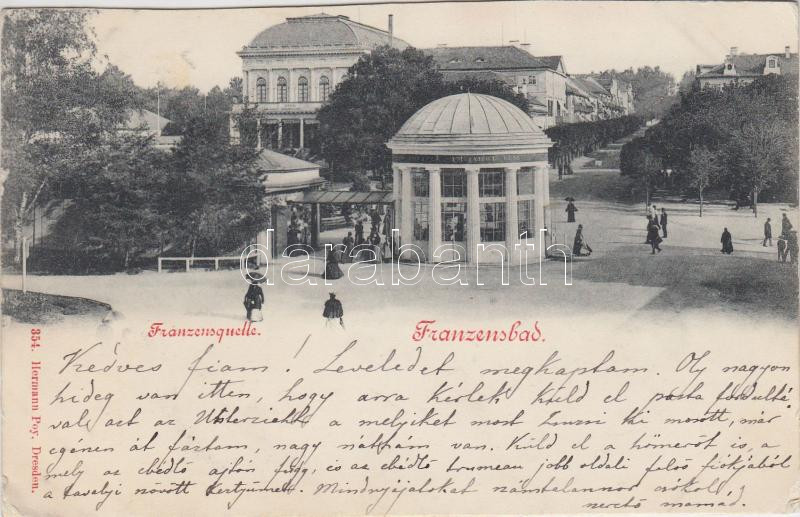 darabanth
Franzensquelle.
Franzensbad.
354. Hermann Poy, Dresden.
Kedves fiam! Leveledet megkaptam. Oly nagyon
hideg van itten, hogy arra kérlek küld el posta fordultá
val azt az a melyiket most Zsuzsi ki mosott, már
egészen át fáztam, nagy náthám van. Küld el a hőmerőt is, a
mely az ebédlő ajtón függ, és az ebédlő trumeau jobb oldali felső fiókjából
a tavalyi növött kertjünket. Mindnyájatokat számtalanszor csókol,
szerető mamád.